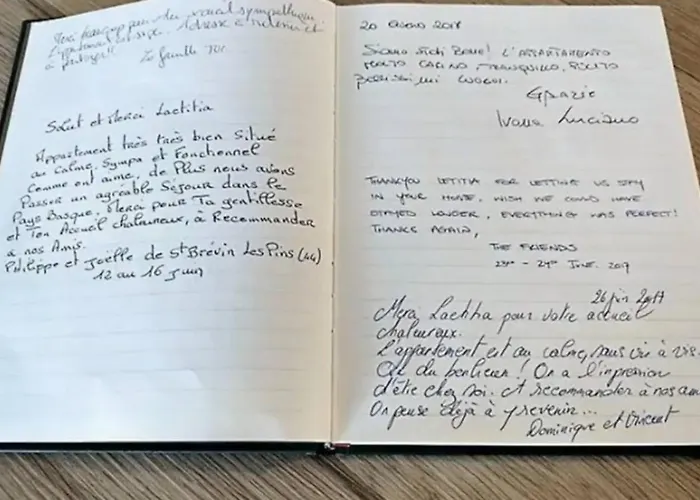 Merci beaucoup pour
à partager!!
La famille
Salut et Merci Laetitia
Appartement très très bien situé
au calme, Sympa et Fonctionnel
Comme ont aime, de Plus nous avons
Passer un agréable Séjour dans le
Pays Basque, Merci pour Ta gentillesse
et Ton Accueil chaleureux, à Recommander
à nos Amis.
Philippe et Joëlle de St Brévin Les Pins (44)
12 au 16 Juin
20 2017
SIAMO STATI BENE! L'APPARTAMENTO
MOLTO CARINO, TRANQUILLO, PULITO
LUOGHI.
Grazie
Ivana Luciano
THANKYOU LETITIA FOR LETTING US STAY
IN YOUR HOME, WISH WE COULD HAVE
STAYED LONGER, EVERYTHING WAS PERFECT!
THANKS AGAIN,
THE FRIENDS
23rd - 24th JUNE. 2017
26 juin 2017
Merci Laetitia pour votre accueil
chaleureux.
L'appartement est au calme, sans vis à vis.
Que du bonheur! On a l'impression
d'être chez soi. A recommander à nos am
On pense déjà à y revenir...
Dominique et Vincent